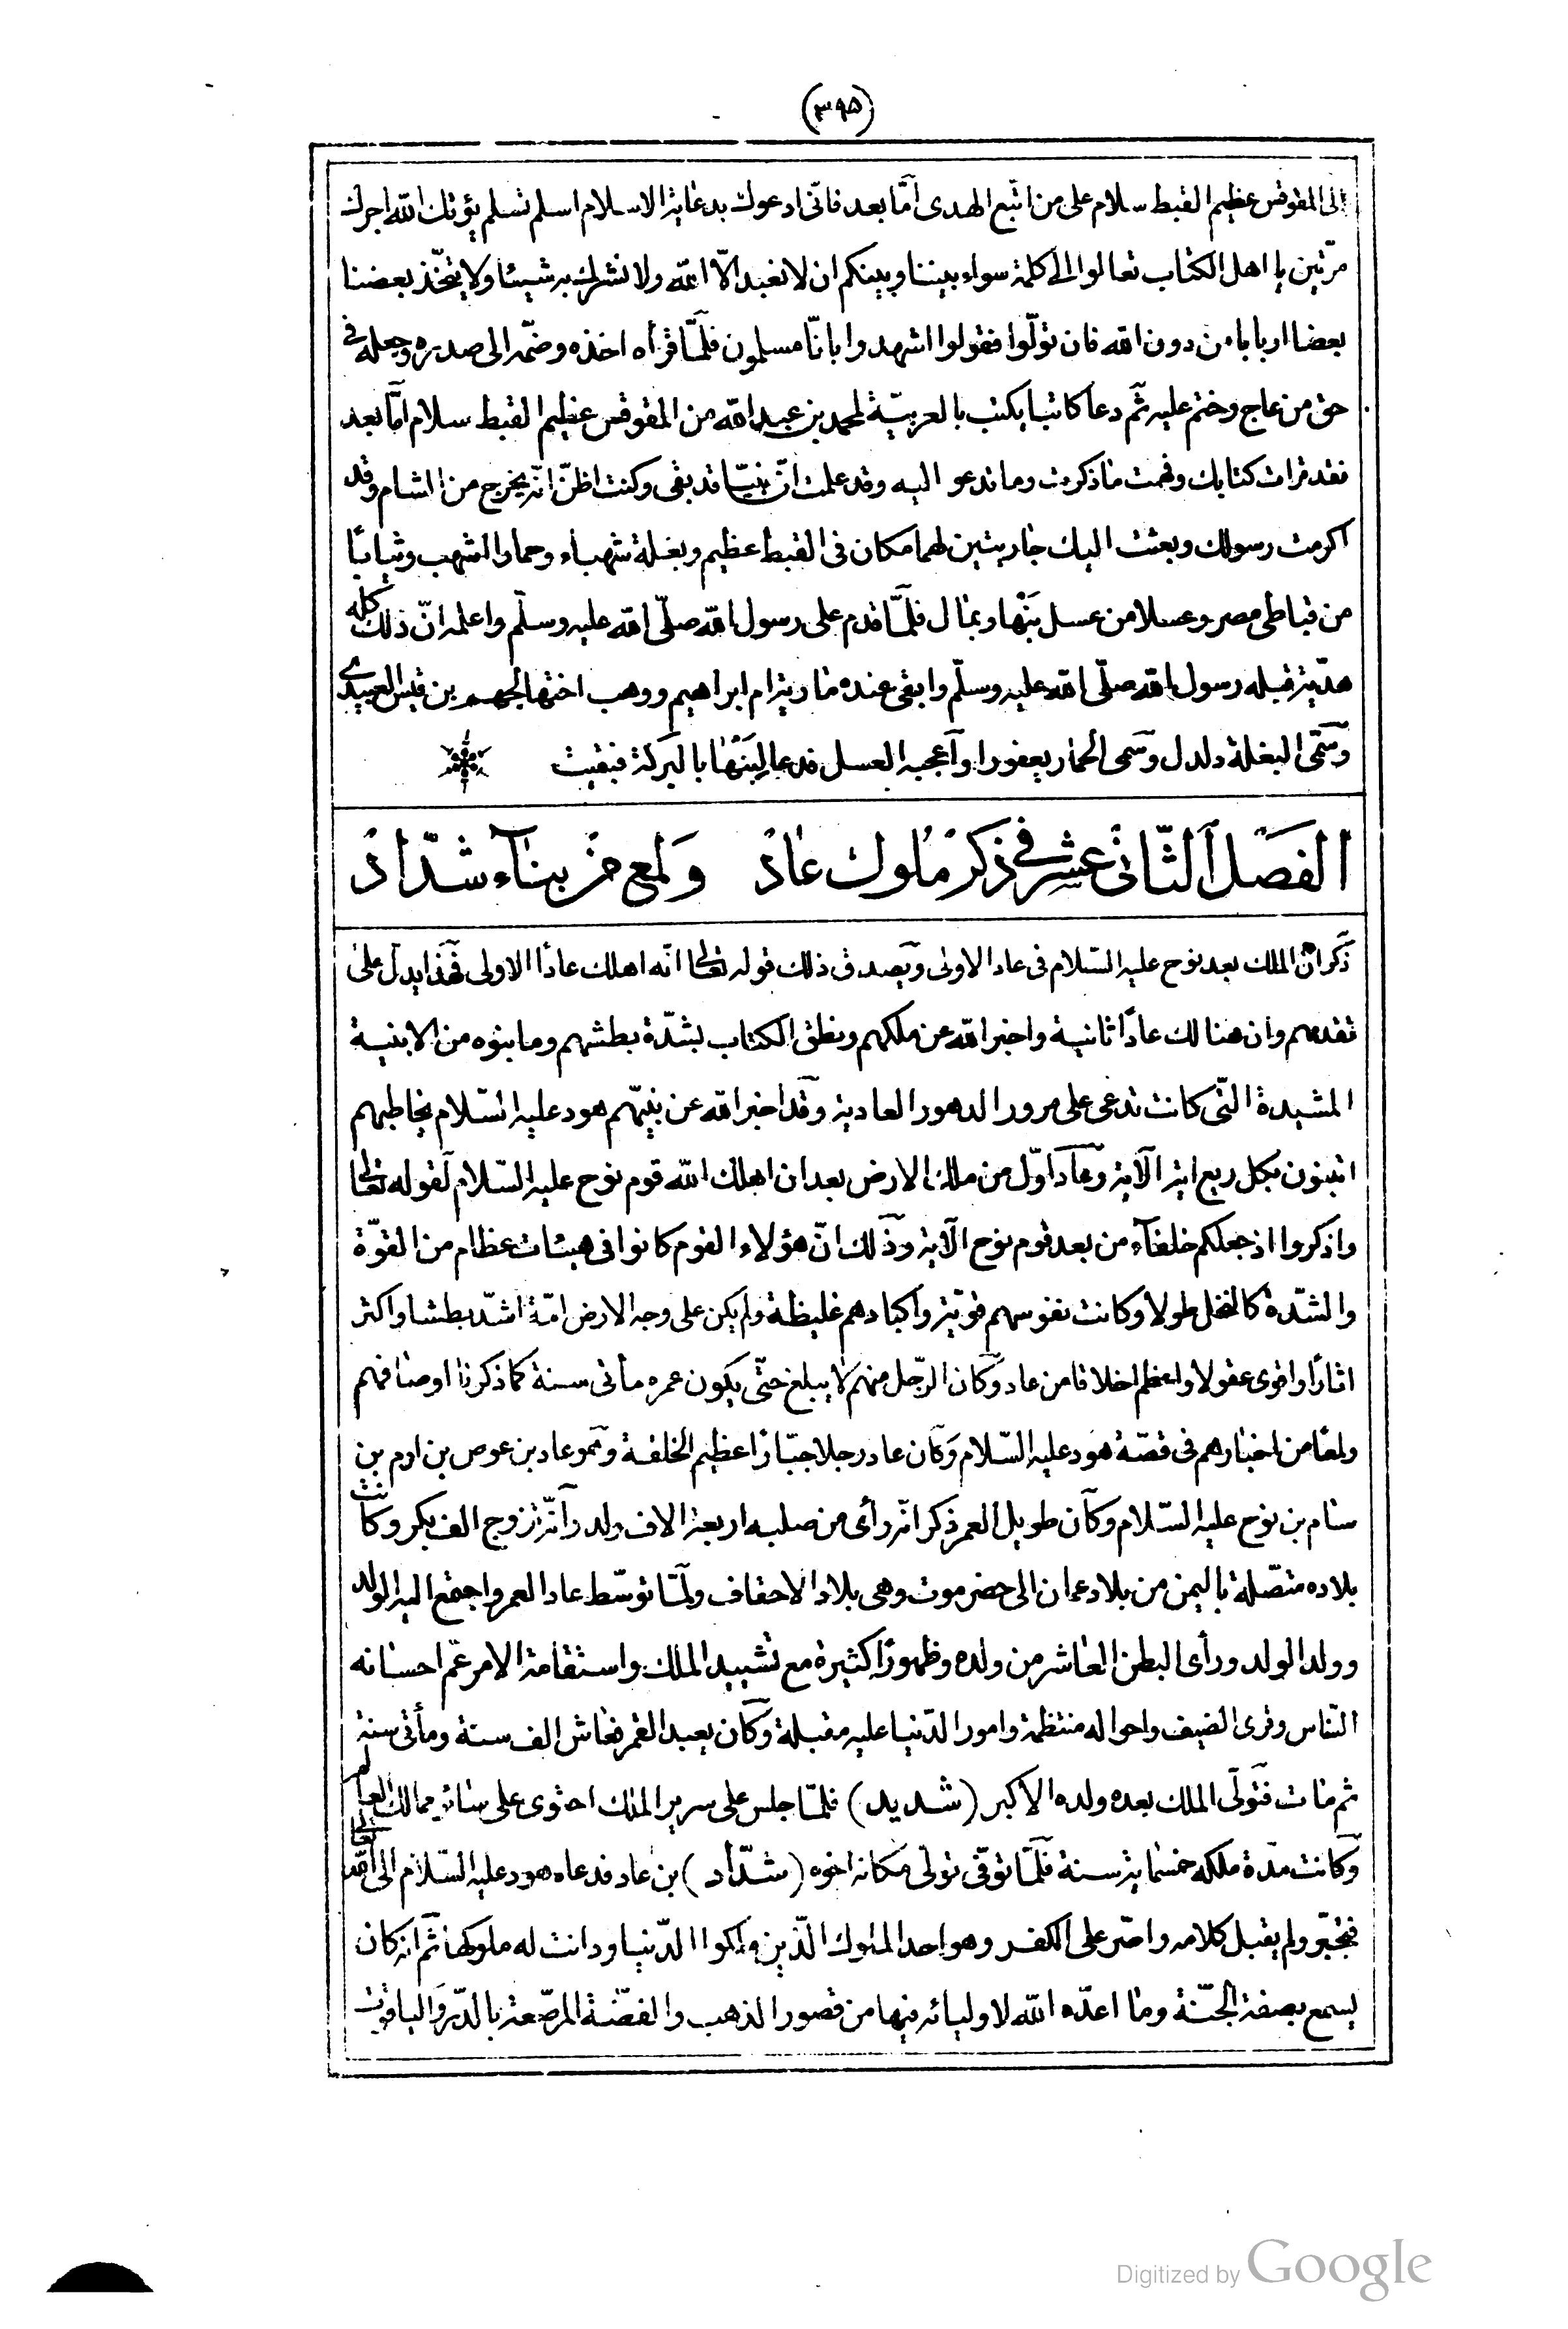 (٣٩۵)
الى المقوقس عظيم القبط سلام على من اتّبع الهدى امّا بعد فانّى ادعوك بدعاية الاسلام اسلم تسلم يؤتك الله اجرك
مرّتين يا اهل الكتاب تعالوا الى كلمة سواء بيننا وبينكم ان لا نعبد الّا الله ولا نشرك به شيئا ولا يتّخذ بعضنا
بعضا اربابا من دون الله فان تولّوا فقولوا اشهدوا بانّا مسلمون فلمّا قرأه اخذه وضمّه الى صدره وجعله فى
حق من عاج وختم عليه ثم دعا كاتبا يكتب بالعربيّة لمحمد بن عبد الله من المقوقس عظيم القبط سلام امّا بعد
فقد قرات كتابك وفهمت ما ذكرت وما تدعو اليه وقد علمت انّ نبيّا قد بقى وكنت اظنّ انّه يخرج من الشام وقد
اكرمت رسولك وبعثت اليك جاريتين لهما مكان فى القبط عظيم وبغلة شهباء وحمارا اشهب وثيابًا
من قباطى مصر وعسلا من عسل بَنْها وبمال فلمّا قدم على رسول الله صلّى الله عليه وسلّم واعلمه انّ ذلك كله
هديّة قبله رسول الله صلّى الله عليه وسلّم وابقى عنده مارية ام ابراهيم ووهب اختها لجهم بن قيس العبدى
وسمّى البغلة دلدل وسمى الحمار يعفورا واعجبه العسل فدعا لِبَنْها بالبركة فبقيت
الفصل الثّانى عشر فى ذكر ملوك عاد ولمع من بناء شدّاد
ذكر ان الملك بعد نوح عليه السّلام فى عاد الاولى ويصدق ذلك قوله تعالى انّه اهلك عادًا الاولى فهذا يدل على
تقدمهم وان هنالك عادًا ثانية واخبر الله عن ملكهم ونطق الكتاب بشدّة بطشهم وما بنوه من الابنية
المشيدة الّتى كانت تدعى على مرور الدهور العادية وقد اخبر الله عن نبيّهم هود عليه السّلام يخاطبهم
اتبنون بكل ريع اية الآية وعاد اوّل من ملك الارض بعد ان اهلك الله قوم نوح عليه السّلام لقوله تعالى
واذكروا اذ جعلكم خلفآء من بعد قوم نوح الآية وذلك انّ هؤلاء القوم كانوا فى هيئات عظام من القوّة
والشدّة كالنخل طولا وكانت نفوسهم قويّة واكبادهم غليظة ولم يكن على وجه الارض امّة اشدّ بطشا واكثر
اثارًا واقوى عقولا واعظم اخلاقا من عاد وكان الرّجل منهم لا يبلغ حتّى يكون عمره مأتى سنة كما ذكرنا اوصافهم
ولمعًا من اخبارهم فى قصّة هود عليه السّلام وكان عاد رجلا جبّارًا عظيم الخلقة وهو عاد بن عوص بن ارم بن
سام بن نوح عليه السّلام وكان طويل العمر ذكر انّه رأى من صلبه اربعة الاف ولد وانّه تزوج الف بكر وكانت
بلاده متّصلة باليمن من بلاد عمان الى حضرموت وهى بلاد الاحقاف ولمّا توسّط عاد العمر واجتمع اليه الولد
وولد الولد ورأى البطن العاشر من ولده وظهورًا كثيرة مع تشييد الملك واستقامة الامر عمّ احسانه
النّاس وقرى الضيف واحواله منتظمة وامور الدّنيا عليه مقبلة وكان يعبد القمر فعاش الف سنة ومأتى سنة
ثم مات فتولّى الملك بعده ولده الاكبر (شديد) فلمّا جلس على سرير الملك احتوى على سائر ممالك العالم
وكانت مدّة ملكه خمسماية سنة فلمّا توفّى تولى مكانه اخوه (شدّاد) بن عاد فدعاه هود عليه السّلام الى الله تعالى
فتجبّر ولم يقبل كلامه واصرّ على الكفر وهو احد الملوك الّذين ملكوا الدّنيا ودانت له ملوكها ثم انه كان
يسمع بصفة الجنّة وما اعدّه الله لاوليائه فيها من قصور الذهب والفضّة المرصّعة بالدّر والياقوت
Digitized by Google